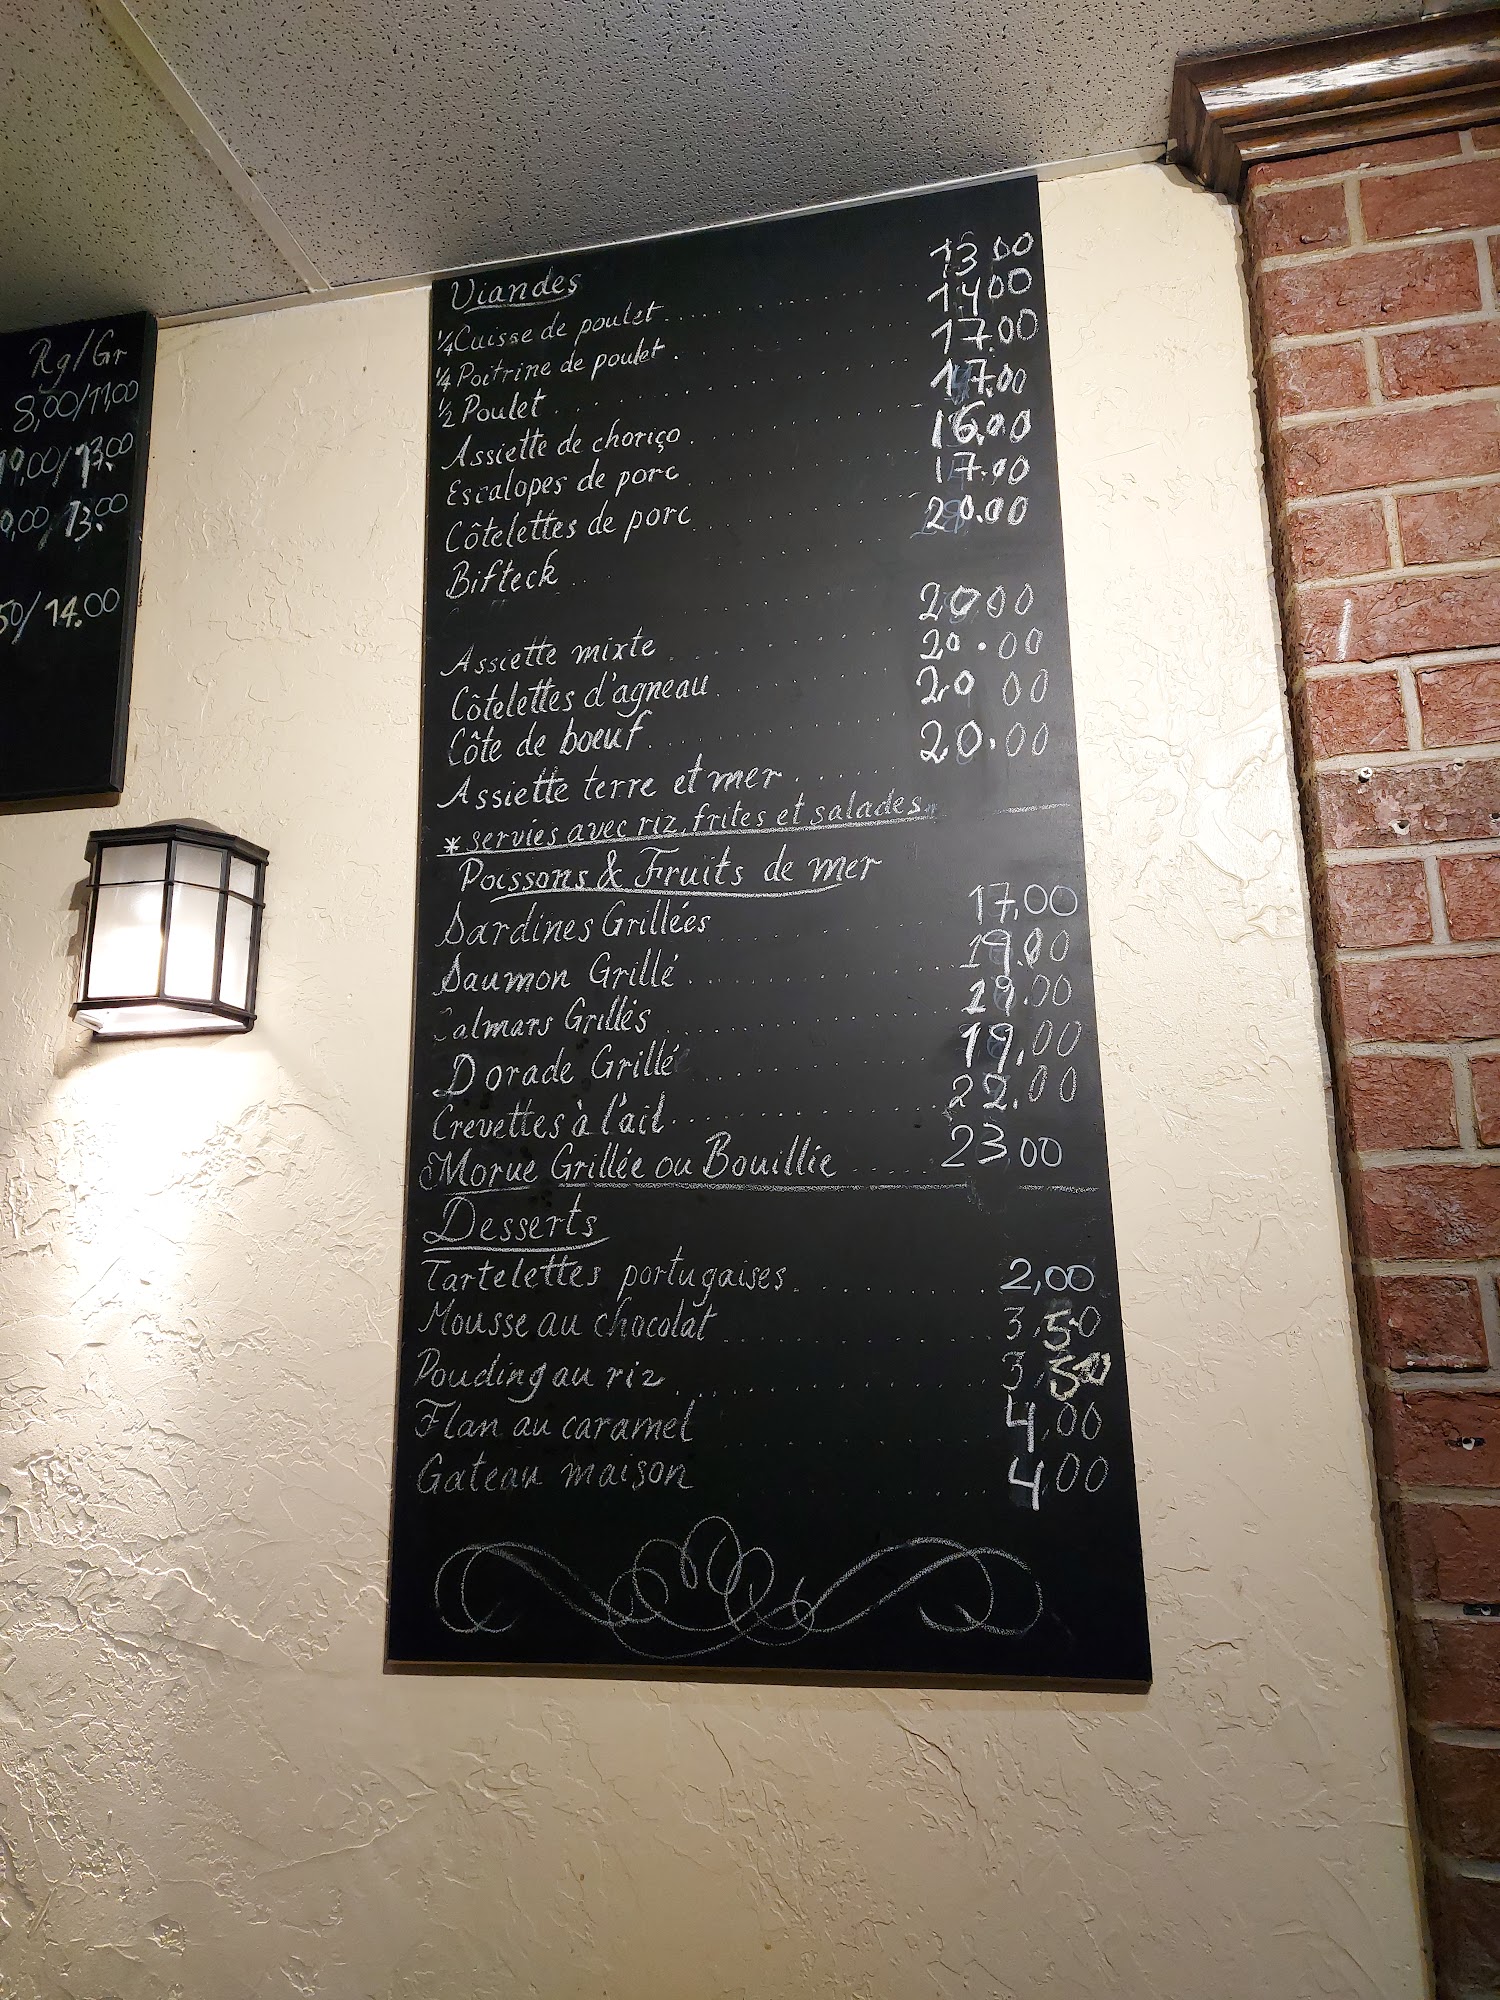 Rg/Gr
8,00/11,00
10,00/13.00
0,00/13.00
50/14.00
Viandes
1/4 Cuisse de poulet 13.00
1/4 Poitrine de poulet 14.00
1/2 Poulet 17.00
Assiette de choriço 17.00
Escalopes de porc 16.00
Côtelettes de porc 17.00
Bifteck 20.00
Assiette mixte 20.00
Côtelettes d'agneau 20.00
Côte de boeuf 20.00
Assiette terre et mer 20.00
* servies avec riz, frites et salades.
Poissons & Fruits de mer
Sardines Grillées 17.00
Saumon Grillé 19.00
Calmars Grillés 19.00
Dorade Grillé 19.00
Crevettes à l'ail 22.00
Morue Grillée ou Bouillie 23.00
Desserts
Tartelettes portugaises 2,00
Mousse au chocolat 3,50
Pouding au riz 3,50
Flan au caramel 4,00
Gateau maison 4,00